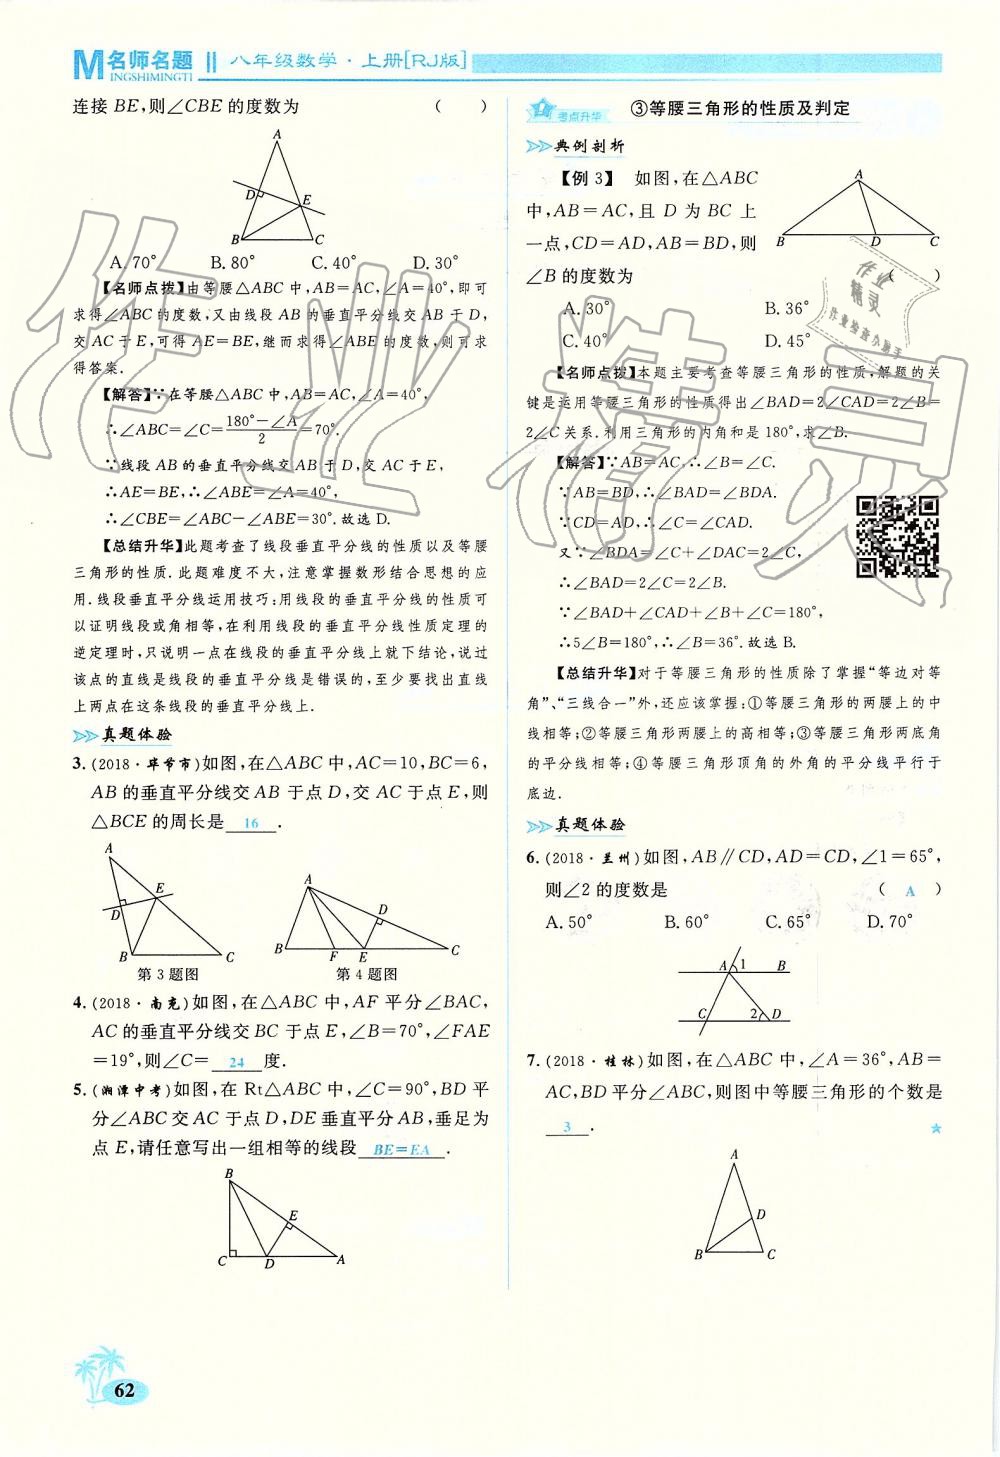 M名师名题
INGSHIMINGTI
八年级数学·上册[RJ版]
连接BE,则∠CBE的度数为 ( )
A
D
E
B
C
A.70° B.80° C.40° D.30°
【名师点拨】由等腰△ABC中,AB=AC,∠A=40°,即可
求得∠ABC的度数,又由线段AB的垂直平分线交AB于D,
交AC于E,可得AE=BE,继而求得∠ABE的度数,则可求
得答案.
【解答】∵在等腰△ABC中,AB=AC,∠A=40°,
∴∠ABC=∠C=(180°-∠A)/2=70°.
∵线段AB的垂直平分线交AB于D,交AC于E,
∴AE=BE,∴∠ABE=∠A=40°,
∴∠CBE=∠ABC-∠ABE=30°.故选D.
【总结升华】此题考查了线段垂直平分线的性质以及等腰
三角形的性质.此题难度不大,注意掌握数形结合思想的应
用.线段垂直平分线运用技巧:用线段的垂直平分线的性质可
以证明线段或角相等,在利用线段的垂直平分线性质定理的
逆定理时,只说明一点在线段的垂直平分线上就下结论,说过
该点的直线是线段的垂直平分线是错误的,至少要找出直线
上两点在这条线段的垂直平分线上.
真题体验
3.(2018·毕节市)如图,在△ABC中,AC=10,BC=6,
AB的垂直平分线交AB于点D,交AC于点E,则
△BCE的周长是 16 .
A
E
D
B
C
第3题图
A
D
B
F
E
C
第4题图
4.(2018·南充)如图,在△ABC中,AF平分∠BAC,
AC的垂直平分线交BC于点E,∠B=70°,∠FAE
=19°,则∠C= 24 度.
5.(湘潭中考)如图,在Rt△ABC中,∠C=90°,BD平
分∠ABC交AC于点D,DE垂直平分AB,垂足为
点E,请任意写出一组相等的线段 BE=EA .
B
E
C
D
A
62
考点升华 ③等腰三角形的性质及判定
典例剖析
【例3】 如图,在△ABC
中,AB=AC,且D为BC上
一点,CD=AD,AB=BD,则
∠B的度数为 ( )
A
B
D
C
A.30° B.36°
C.40° D.45°
【名师点拨】本题主要考查等腰三角形的性质,解题的关
键是运用等腰三角形的性质得出∠BAD=2∠CAD=2∠B=
2∠C关系.利用三角形的内角和是180°,求∠B.
【解答】∵AB=AC,∴∠B=∠C.
∵AB=BD,∴∠BAD=∠BDA.
∵CD=AD,∴∠C=∠CAD.
又∵∠BDA=∠C+∠DAC=2∠C,
∴∠BAD=2∠C=2∠B.
∵∠BAD+∠CAD+∠B+∠C=180°,
∴5∠B=180°,∴∠B=36°.故选B.
【总结升华】对于等腰三角形的性质除了掌握“等边对等
角”、“三线合一”外,还应该掌握:①等腰三角形的两腰上的中
线相等;②等腰三角形两腰上的高相等;③等腰三角形两底角
的平分线相等;④等腰三角形顶角的外角的平分线平行于
底边.
真题体验
6.(2018·兰州)如图,AB∥CD,AD=CD,∠1=65°,
则∠2的度数是 ( A )
A.50° B.60° C.65° D.70°
A
1
B
C
2
D
7.(2018·桂林)如图,在△ABC中,∠A=36°,AB=
AC,BD平分∠ABC,则图中等腰三角形的个数是
3 .
A
D
B
C
作业精灵
作业
精灵
作业检查小助手